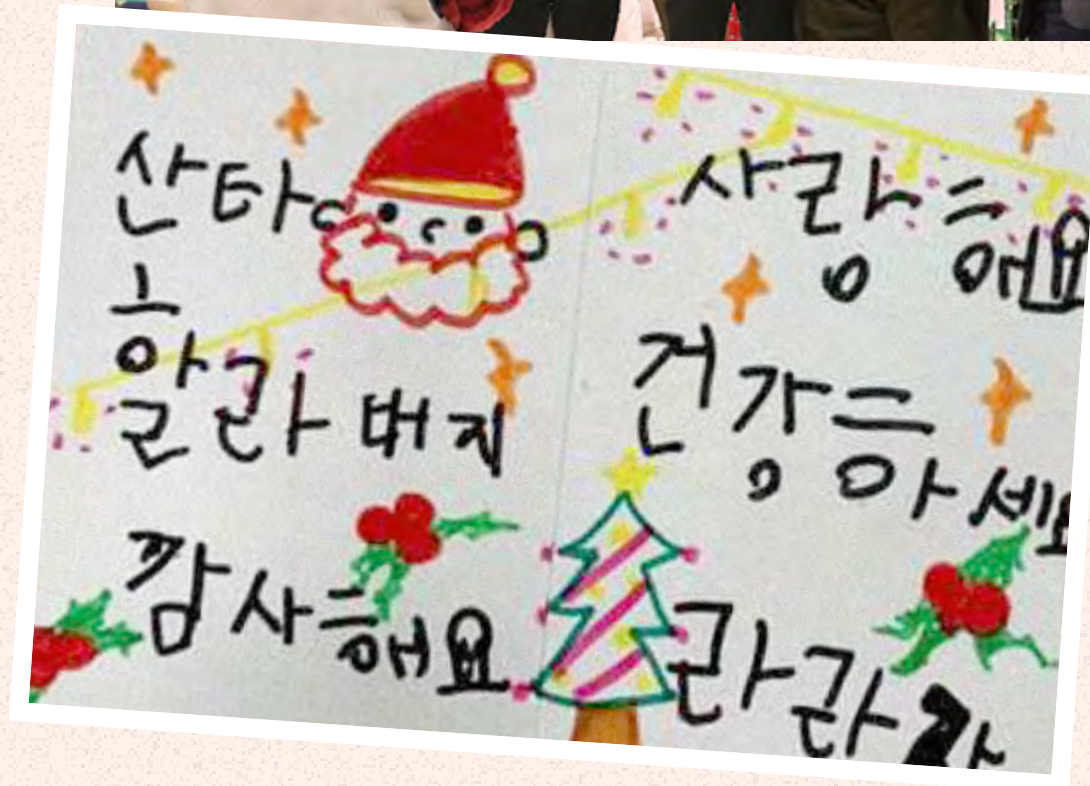 산타
할라버지
감사해요
사랑해요
건강하세요
라라가